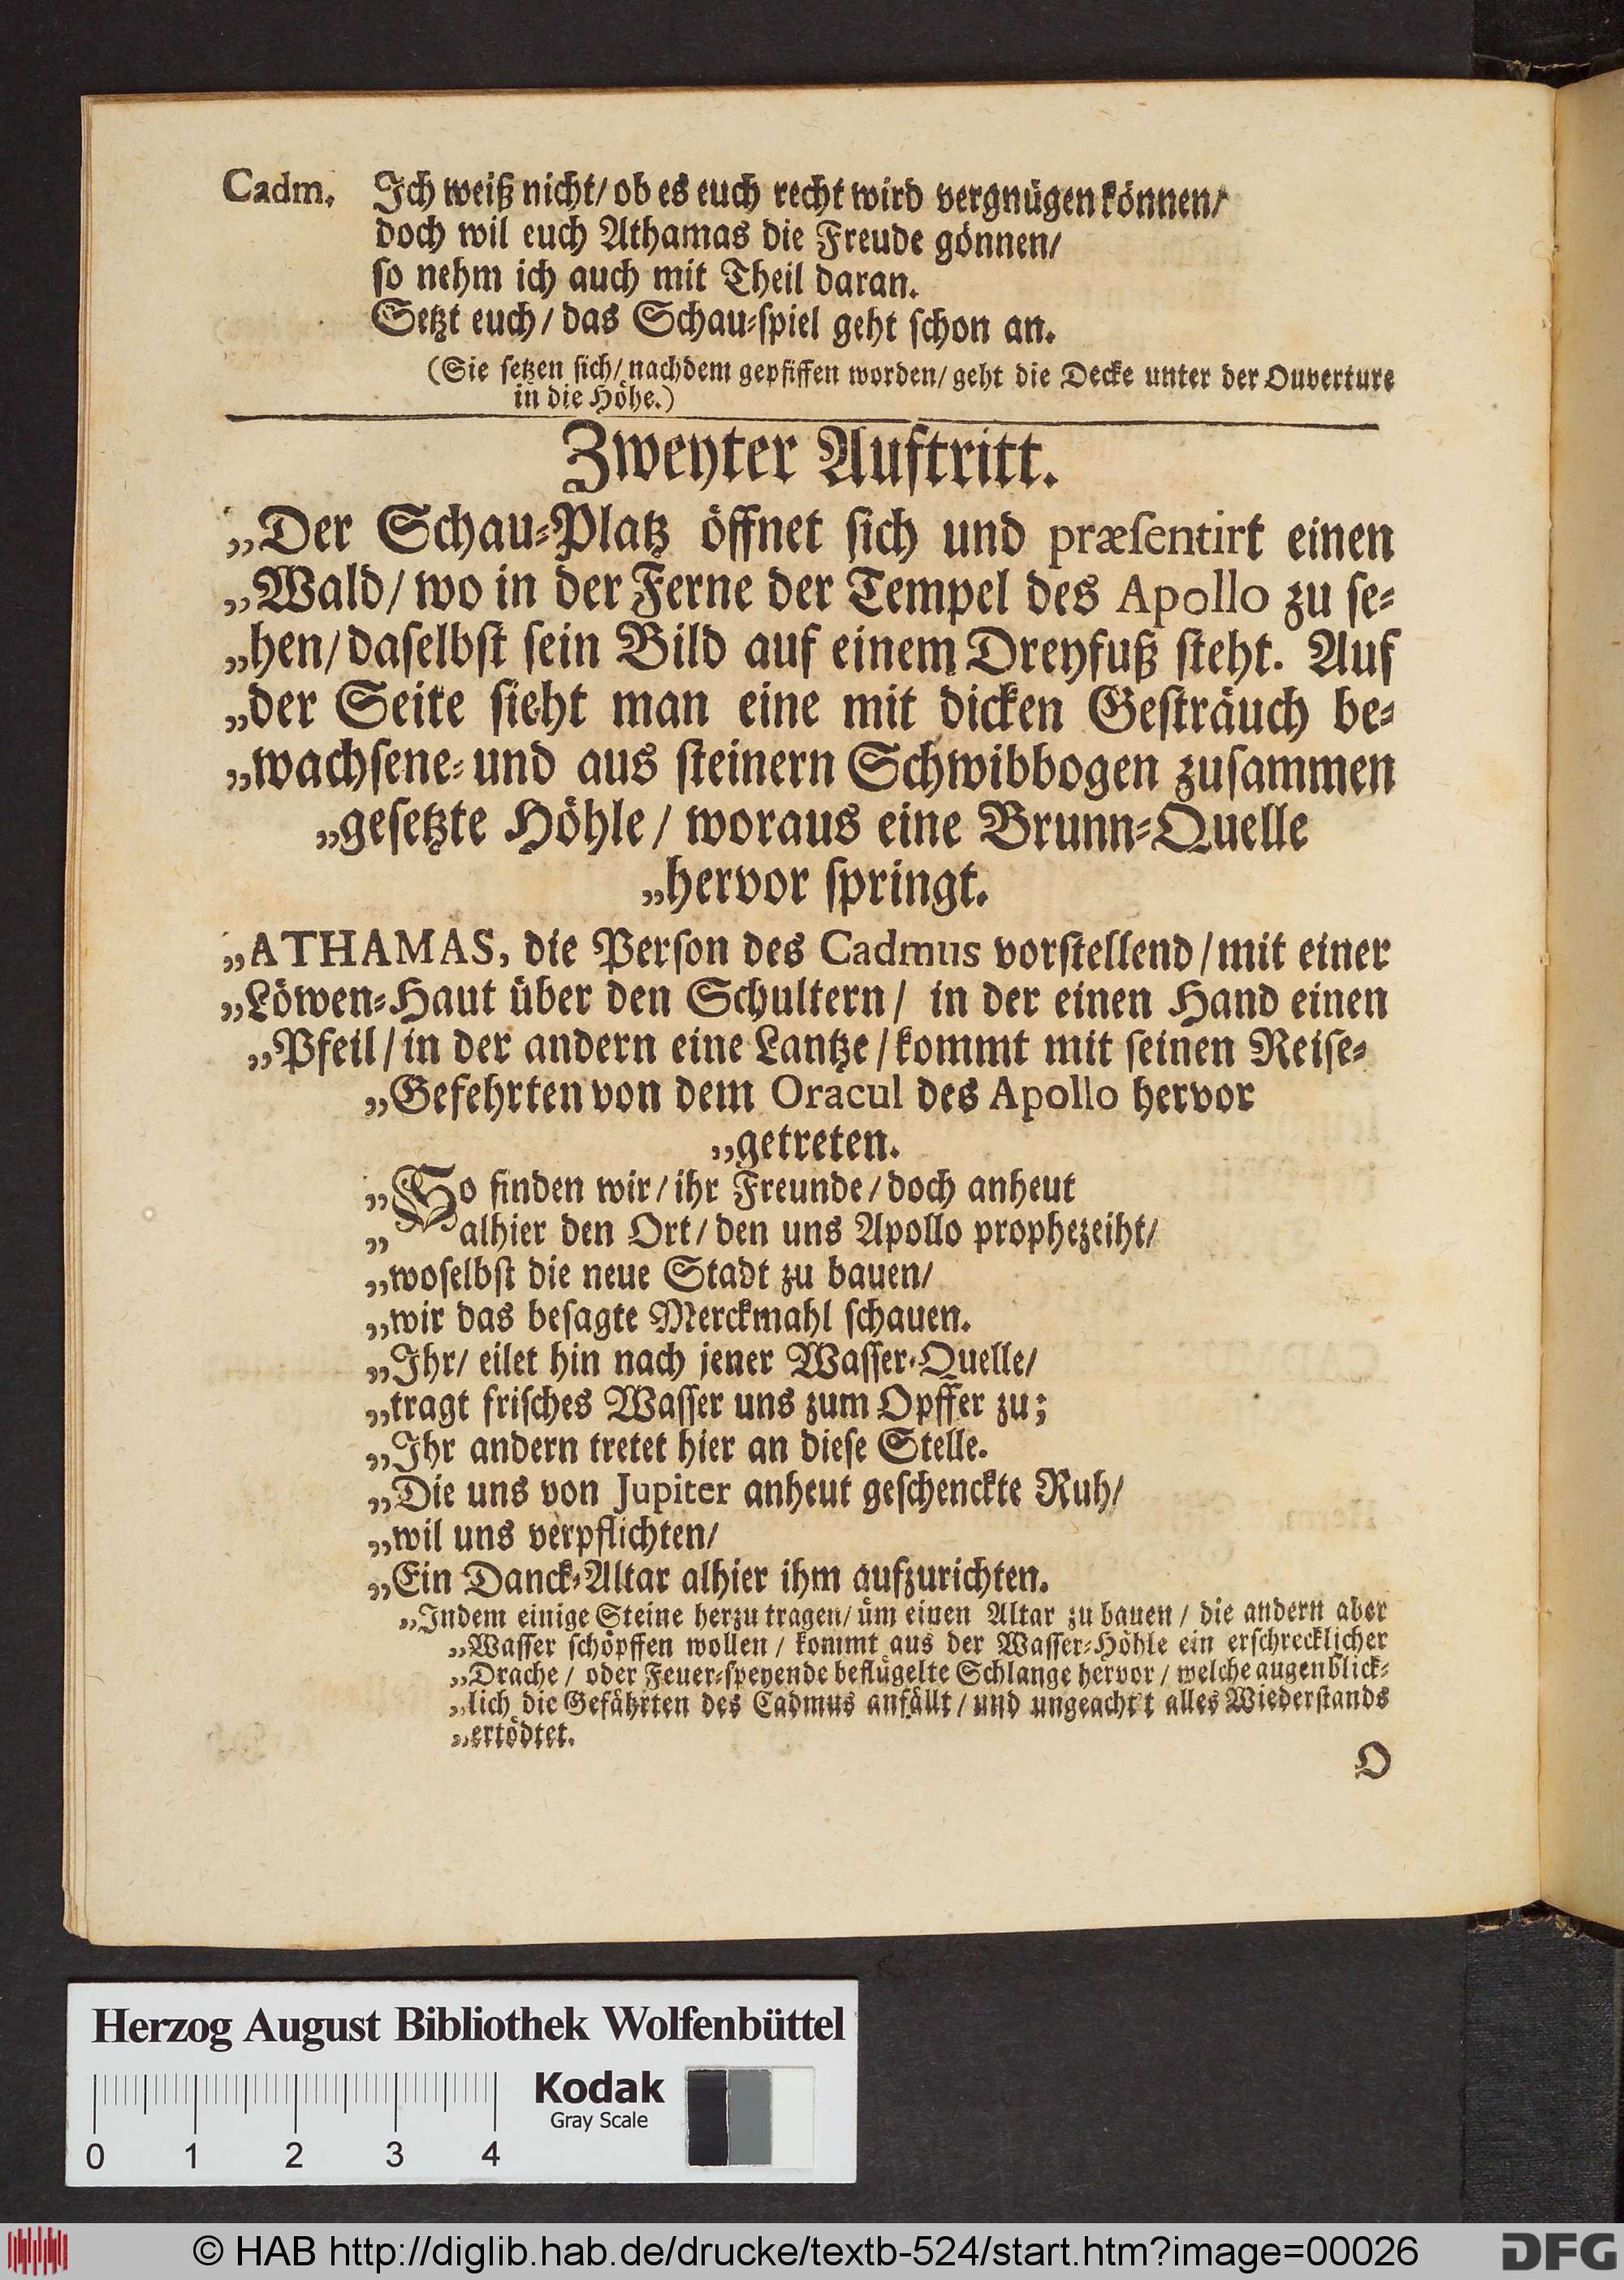 Cadm. Ich weiß nicht/ ob es euch recht wird vergnügen können/
doch wil euch Athamas die Freude gönnen/
so nehm ich auch mit Theil daran.
Setzt euch/ das Schau-spiel geht schon an.
(Sie setzen sich/ nachdem gepfiffen worden/ geht die Decke unter der Ouverture
in die Höhe.)
Zweyter Auftritt.
„Der Schau-Platz öffnet sich und præsentirt einen
„Wald/ wo in der Ferne der Tempel des Apollo zu se-
„hen/ daselbst sein Bild auf einem Dreyfuß steht. Auf
„der Seite sieht man eine mit dicken Gesträuch be-
„wachsene- und aus steinern Schwibbogen zusammen
„gesetzte Höhle/ woraus eine Brunn-Quelle
„hervor springt.
„ATHAMAS, die Person des Cadmus vorstellend/ mit einer
„Löwen-Haut über den Schultern/ in der einen Hand einen
„Pfeil/ in der andern eine Lantze/ kommt mit seinen Reise-
„Gefehrten von dem Oracul des Apollo hervor
„getreten.
„So finden wir/ ihr Freunde/ doch anheut
„alhier den Ort/ den uns Apollo prophezeiht/
„woselbst die neue Stadt zu bauen/
„wir das besagte Merckmahl schauen.
„Ihr/ eilet hin nach jener Wasser-Quelle/
„tragt frisches Wasser uns zum Opffer zu;
„Ihr andern tretet hier an diese Stelle.
„Die uns von Jupiter anheut geschenckte Ruh/
„wil uns verpflichten/
„Ein Danck-Altar alhier ihm aufzurichten.
„Indem einige Steine herzu tragen/ üm einen Altar zu bauen/ die andern aber
„Wasser schöpffen wollen/ kommt aus der Wasser-Höhle ein erschrecklicher
„Drache/ oder Feuer-speyende beflügelte Schlange hervor/ welche augenblick-
„lich die Gefährten des Cadmus anfällt/ und ungeacht't alles Wiederstands
„ertödtet.
O
Herzog August Bibliothek Wolfenbüttel
Kodak
Gray Scale
0 1 2 3 4
© HAB http://diglib.hab.de/drucke/textb-524/start.htm?image=00026
DFG